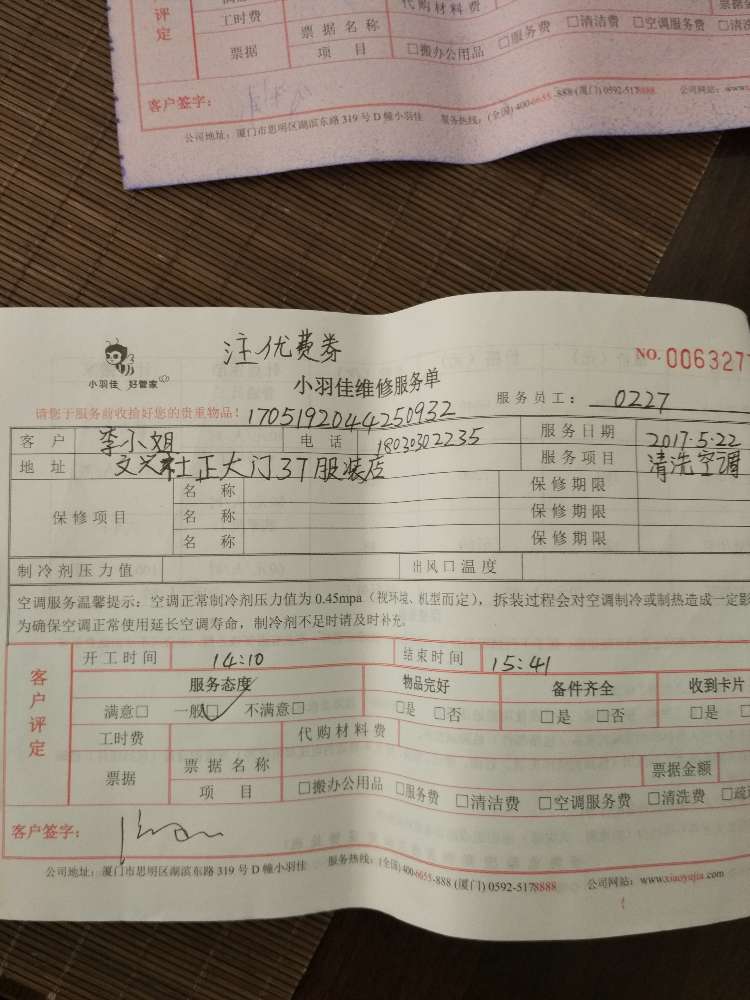 评定
工时费
代购材料费
票据
票据名称
项 目
□搬办公用品 □服务费 □清洁费 □空调服务费 □清洗
客户签字：
公司地址：厦门市思明区湖滨东路 319 号 D 幢小羽佳 服务热线：(全国) 400-6655-888 (厦门) 0592-5178888 公司网站：www.
注优费券
小羽佳 好管家
小羽佳维修服务单
NO. 006327
请您于服务前收拾好您的贵重物品！ 1705192044250932 服务员工： 0227
客 户 李小姐 电 话 18030302235 服务日期 2017.5.22
地 址 文兴社正大门37服装店 服务项目 清洗空调
保修项目
名 称 保修期限
名 称 保修期限
名 称 保修期限
制冷剂压力值 出风口温度
空调服务温馨提示：空调正常制冷剂压力值为 0.45mpa（视环境、机型而定），拆装过程会对空调制冷或制热造成一定影
为确保空调正常使用延长空调寿命，制冷剂不足时请及时补充.
客户评定
开工时间 14:10 结束时间 15:41
服务态度 物品完好 备件齐全 收到卡片
满意□ 一般□ 不满意□ □是 □否 □是 □否 □是
工时费 代购材料费
票据 票据名称 票据金额
项 目 □搬办公用品 □服务费 □清洁费 □空调服务费 □清洗费 □疏
客户签字：
公司地址：厦门市思明区湖滨东路 319 号 D 幢小羽佳 服务热线：(全国) 400-6655-888 (厦门) 0592-5178888 公司网站：www.xiaoyujia.com